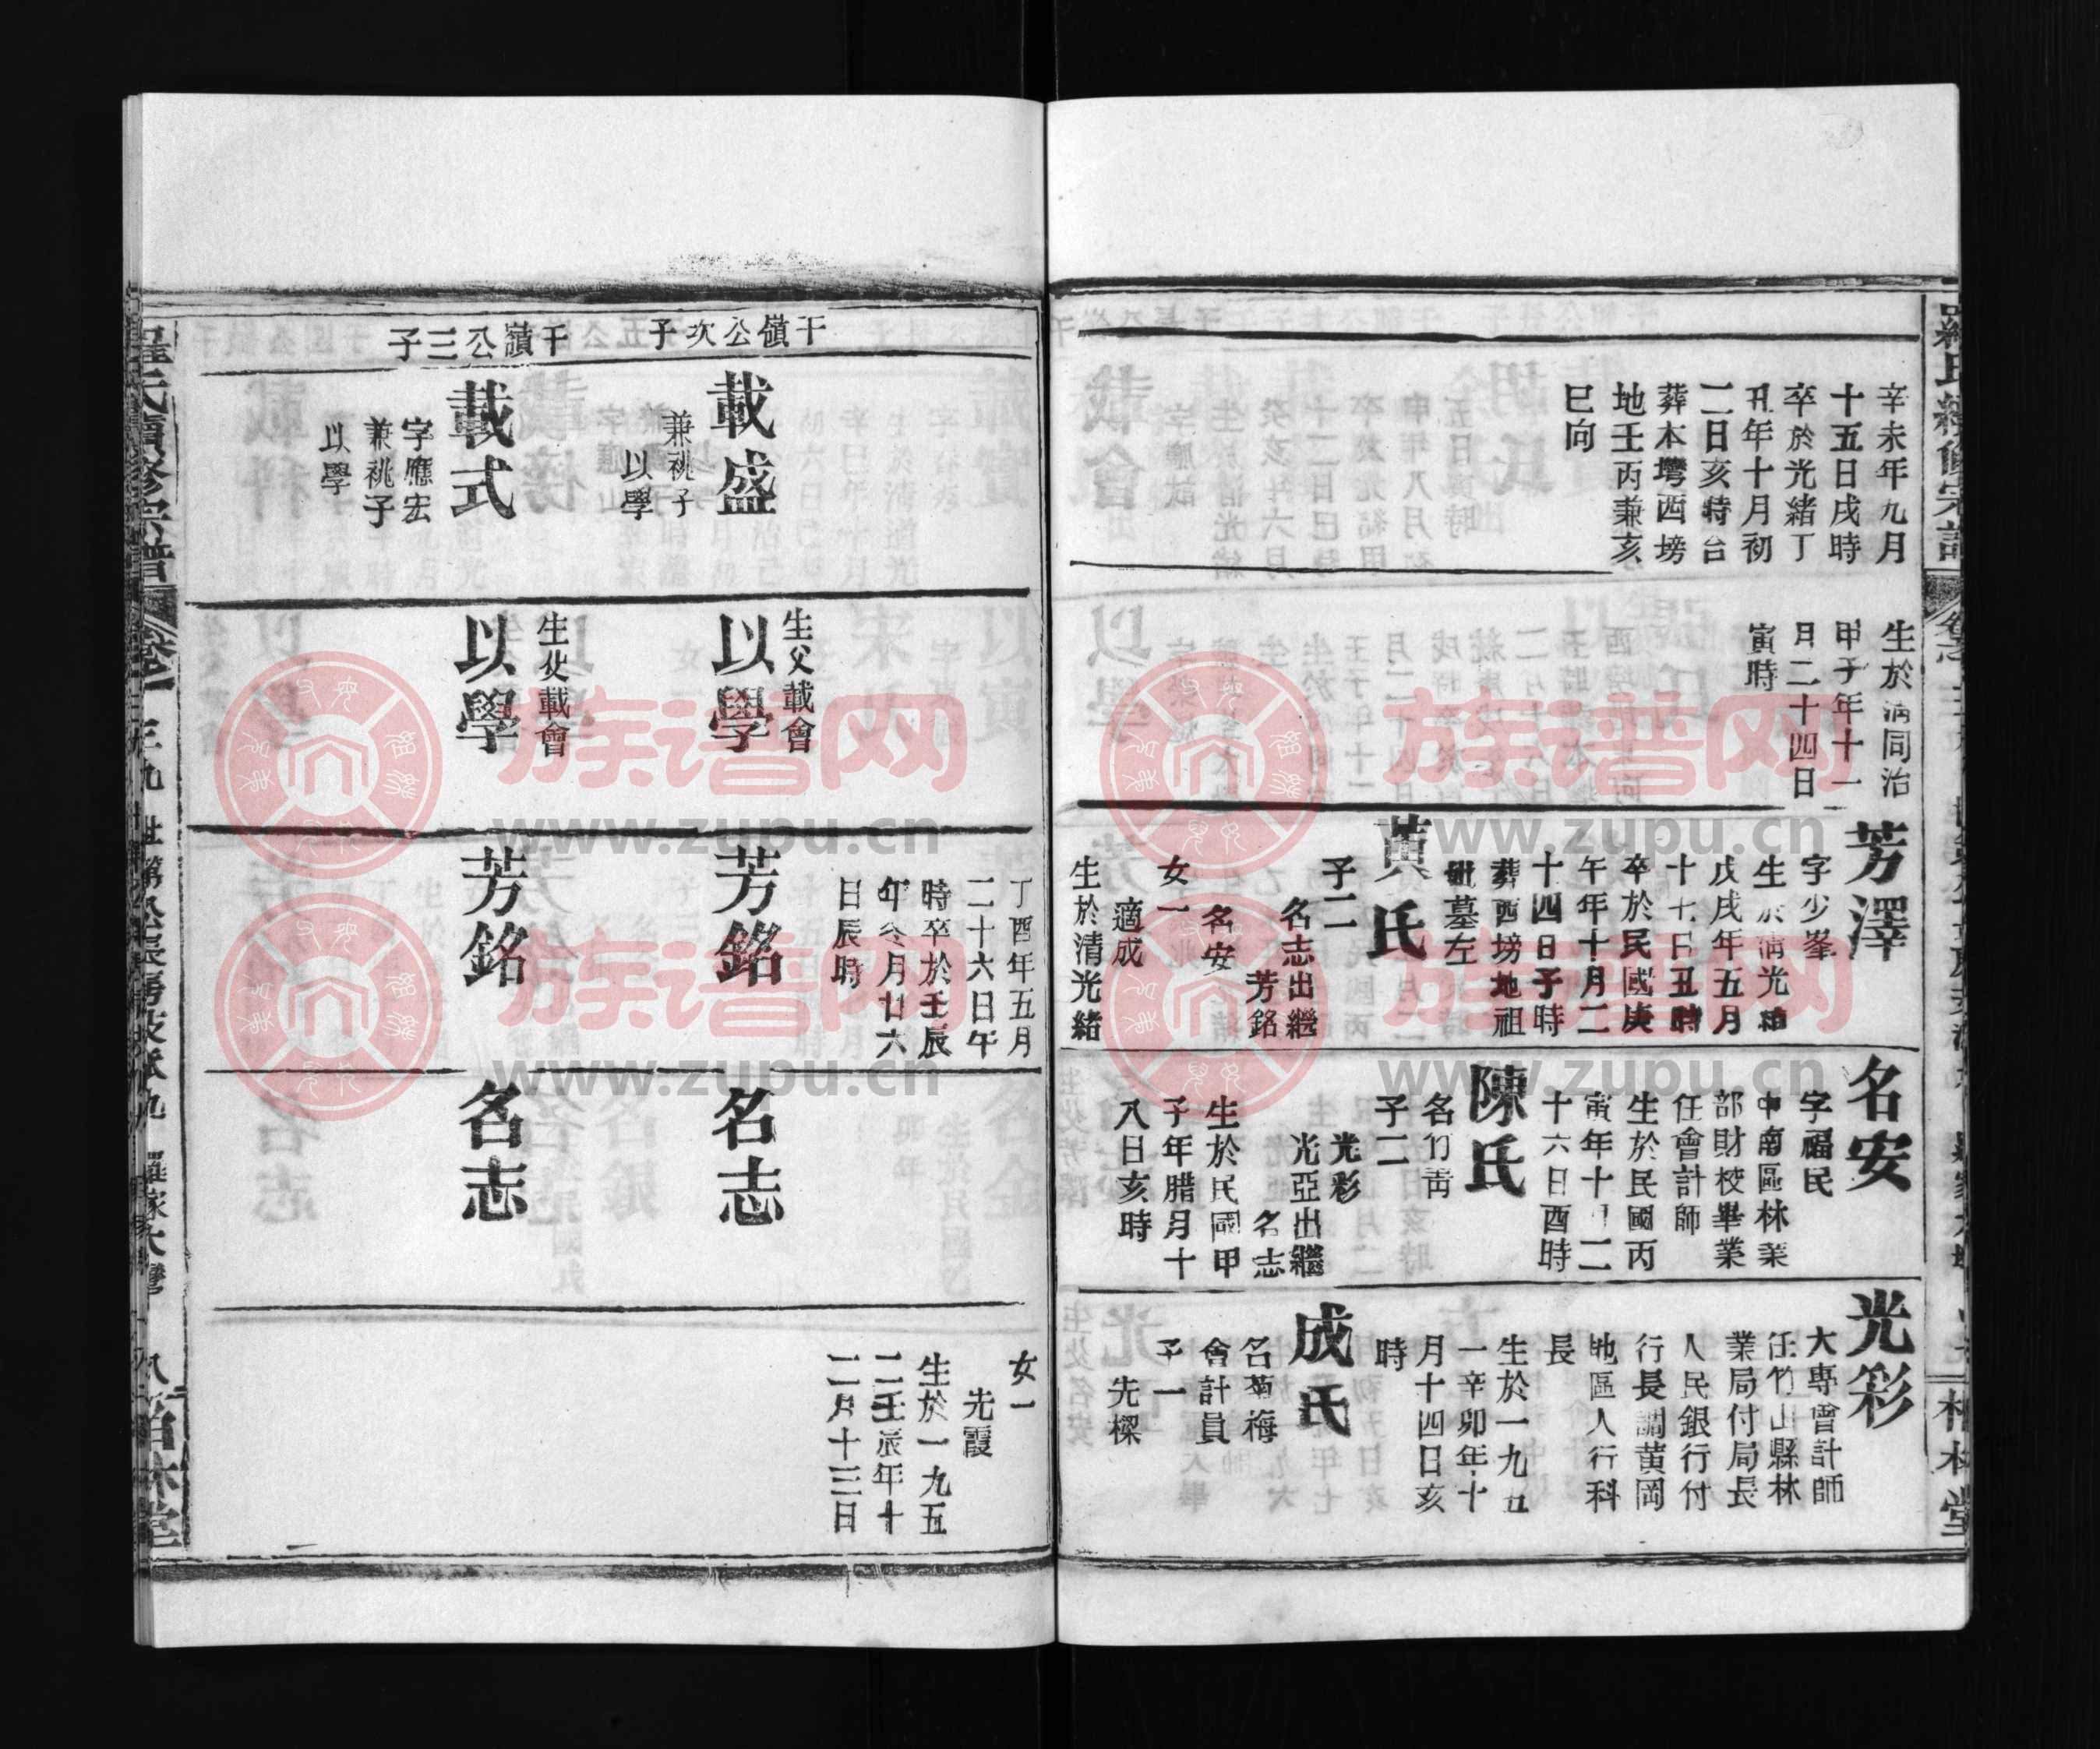 辛未年九月
十五日戌時
卒於光緒丁
丑年十月初
二日亥時合
葬本塆西塝
地壬丙兼亥
巳向
生於清同治
甲子年十一
月二十四日
寅時
芳澤
字少峯
生於清光緒
戊戌年五月
十七日丑時
卒於民國庚
午年十月二
十四日子時
葬西塝地祖
妣墓左
黃氏
子二
名志出繼
芳銘
名安
女一
適成
生於清光緒
名安
字福民
中南區林業
部財校畢業
任會計師
生於民國丙
寅年十月二
十六日酉時
陳氏
名竹青
子二
光彩
光亞出繼
名志
生於民國甲
子年腊月十
八日亥時
光彩
大專會計師
任竹山縣林
業局付局長
人民銀行付
行長調黄岡
地區人行科
長
生於一九五
一辛卯年十
月十四日亥
時
成氏
名菊梅
會計員
子一
先樑
丁酉年五月
二十六日午
時卒於壬辰
年冬月廿六
日辰時
女一
先霞
生於一九五
二壬辰年十
二月十三日
干嶺公次子
載盛
兼祧子
以學
生父載會
以學
芳銘
名志
干嶺公三子
載式
字應宏
兼祧子
以學
生父載會
以學
芳銘
名志
羅氏續修宗譜
柏林堂
www.zupu.cn
族谱网
www.zupu.cn
族谱网
www.zupu.cn
族谱网
www.zupu.cn
族谱网